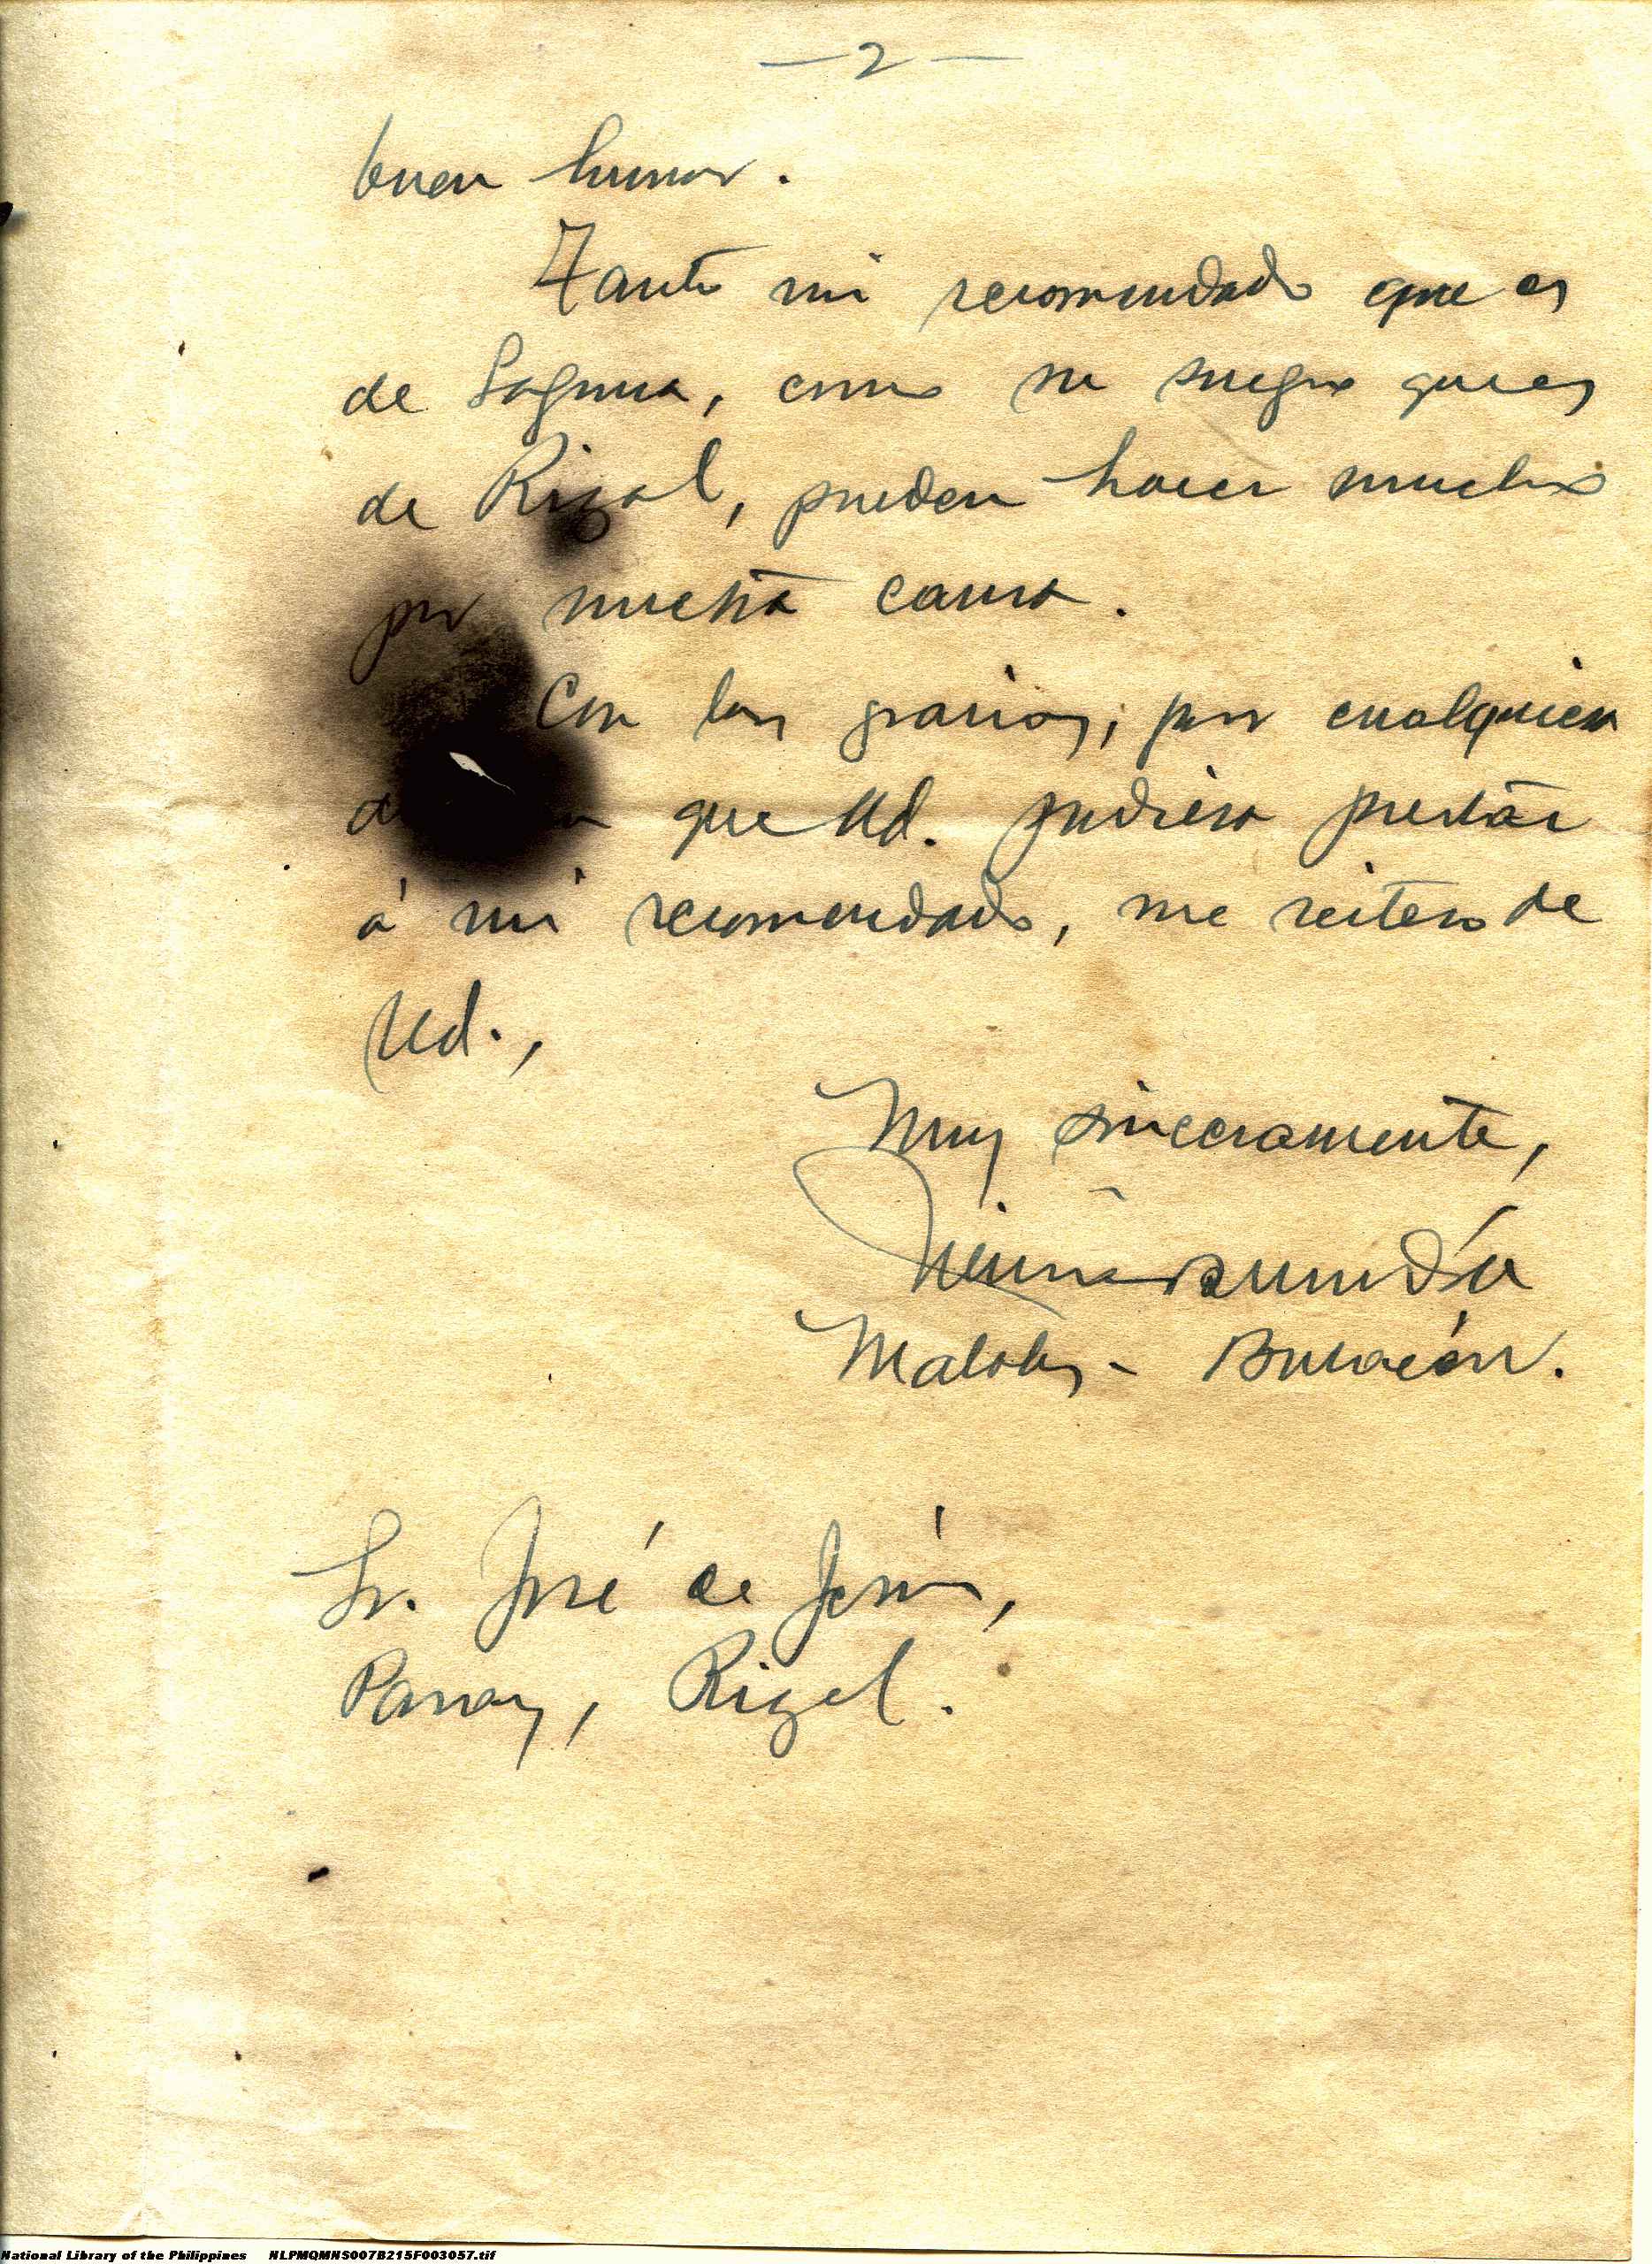 — 2 —
buen humor.
Tanto mi recomendado que es
de Laguna, como su suegro que es
de Rizal, pueden hacer mucho
por nuestra causa.
Con las gracias, por cualquiera
que Ud. pudiera prestar
á mi recomendado, me reitero de
Ud.,
Muy sinceramente,
Malolos - Bulacán.
Sr. José de Jesús,
Pasay, Rizal.
National Library of the Philippines NLPMQMNS007B215F003057.tif